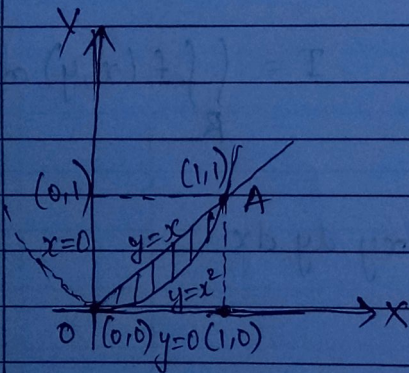 Y
(0,1)
(1,1)
A
x=0
y=x
y=x²
X
O
(0,0)
y=0
(1,0)